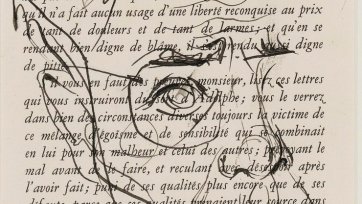 qu'il n'a fait aucun usage d'une liberté reconquise au prix
de tant de douleurs et de tant de larmes; et qu'en se
rendant bien digne de blâme, il s'est rendu aussi digne
de pitié.
Il vous en faut des preuves, monsieur, lisez ces lettres
qui vous instruiront du sort d'Adolphe; vous le verrez
dans bien des circonstances diverses toujours la victime de
ce mélange d'égoïsme et de sensibilité qui se combinait
en lui pour son malheur et celui des autres; prévoyant le
mal avant de le faire, et reculant avec désespoir après
l'avoir fait; puni de ses qualités plus encore que de ses
défauts, parce que ses qualités prenaient leur source dans